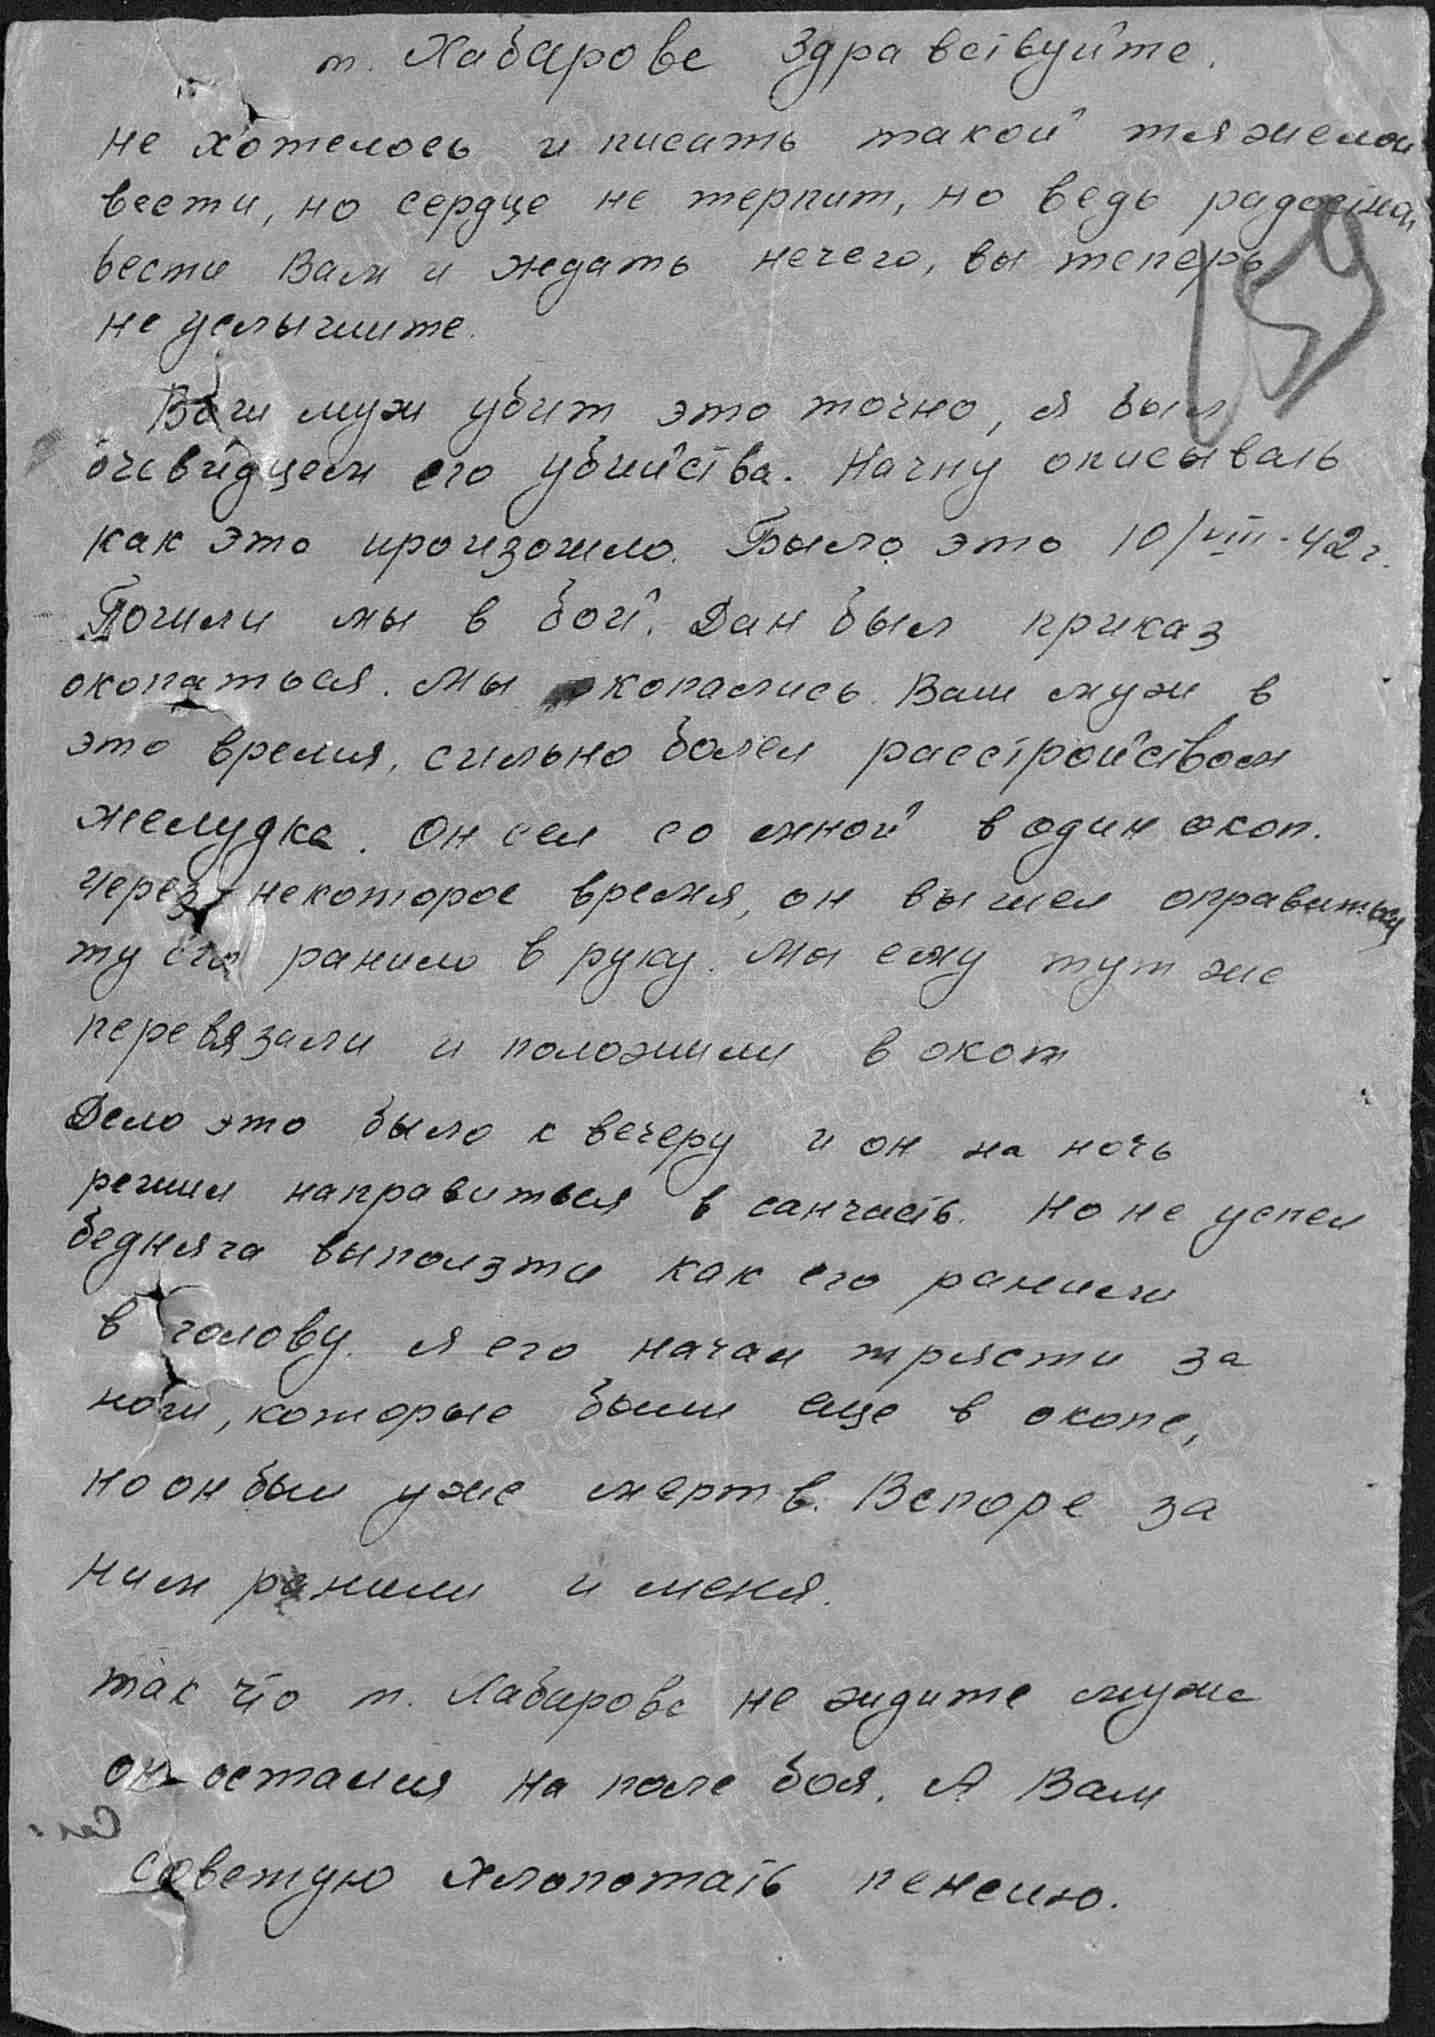 т. Хабарова Здравствуйте.
не хотелось и писать такой тяжелой
вести, но сердце не терпит, но ведь радостной
вести Вам и ждать нечего, вы теперь
не услышите.
Ваш муж убит это точно, я был
очевидцем его убийства. Начну описывать
как это произошло. Было это 10/VIII-42г.
Пошли мы в бой. Дан был приказ
окопаться. Мы окопались. Ваш муж в
это время, сильно болел расстройством
желудка. Он сел со мной в один окоп.
Через некоторое время, он вышел оправиться
ту его ранило в руку. Мы ему тут же
перевязали и положили в окоп
Дело это было к вечеру и он на ночь
решил направиться в санчасть. Но не успел
бедняга выползти как его ранили
в голову. Я его начал трясти за
ноги, которые были еще в окопе,
но он был уже мертв. Вспоре за
ним ранили и меня.
так что т. Хабарова не ждите мужа
он остался на поле боя. А Вам
советую хлопотать пенсию.